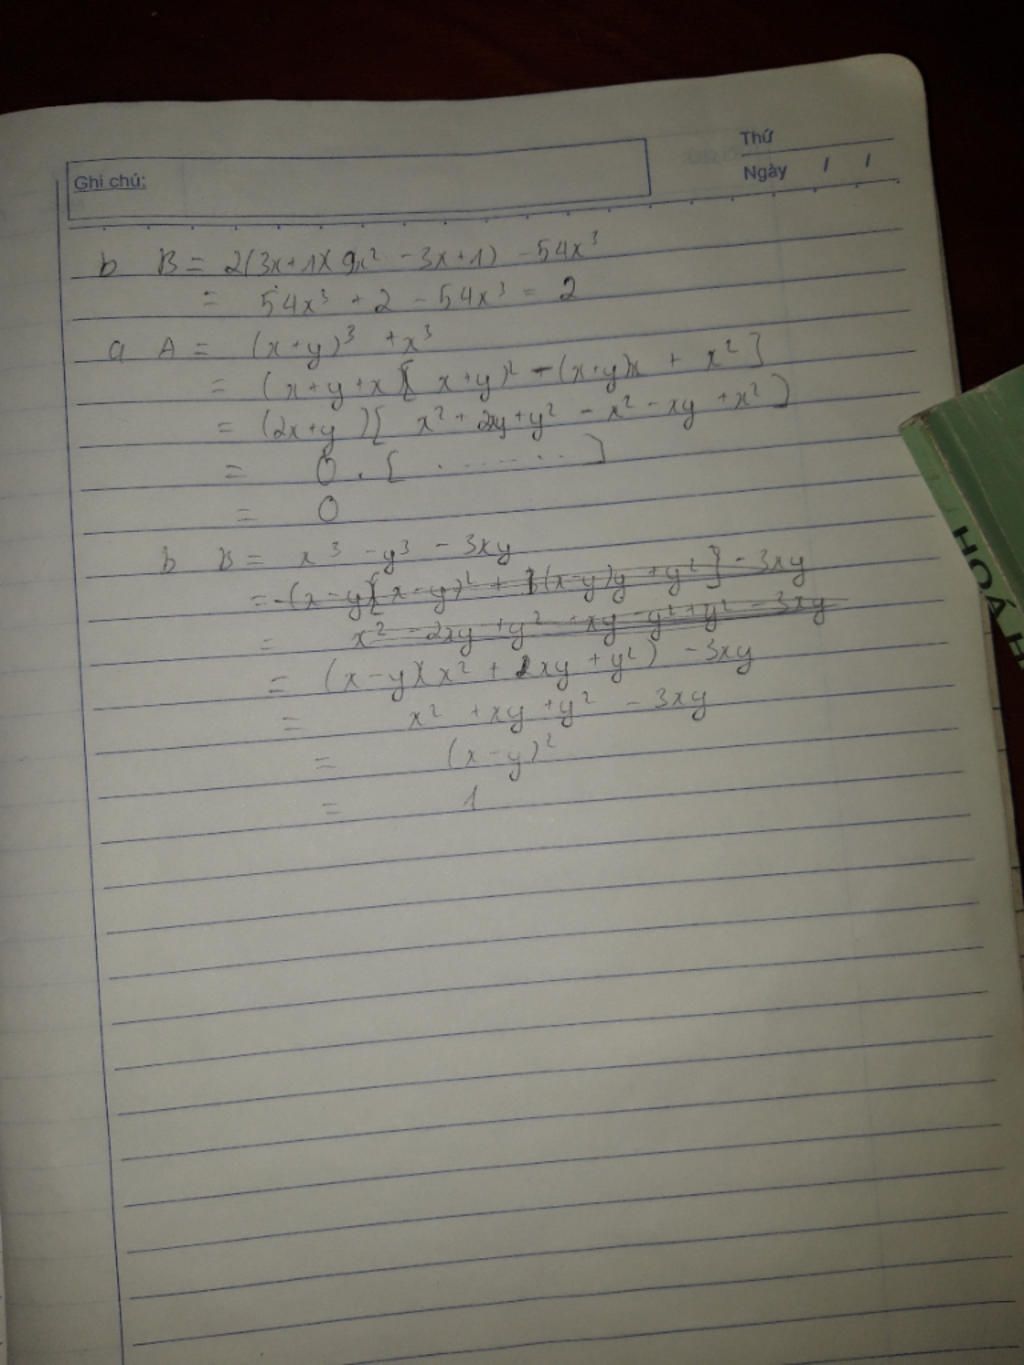 Thứ
Ghi chú:
Ngày / /
b B = 2(3x+1)(9x² - 3x+1) - 54x³
= 54x³ + 2 - 54x³ = 2
a A = (x+y)³ + x³
= (x+y+x)[(x+y)² - (x+y)x + x²]
= (2x+y)[x² + 2xy + y² - x² - xy + x²]
= 0 . [ . ...... ]
= 0
b B = x³ - y³ - 3xy
= (x-y)[(x-y)² + 3(x-y)y + y²] - 3xy
= x² - 2xy + y² + xy - y² + y² - 3xy
= (x-y)(x² + xy + y²) - 3xy
= x² + xy + y² - 3xy
= (x-y)²
= 1
HOÁ H